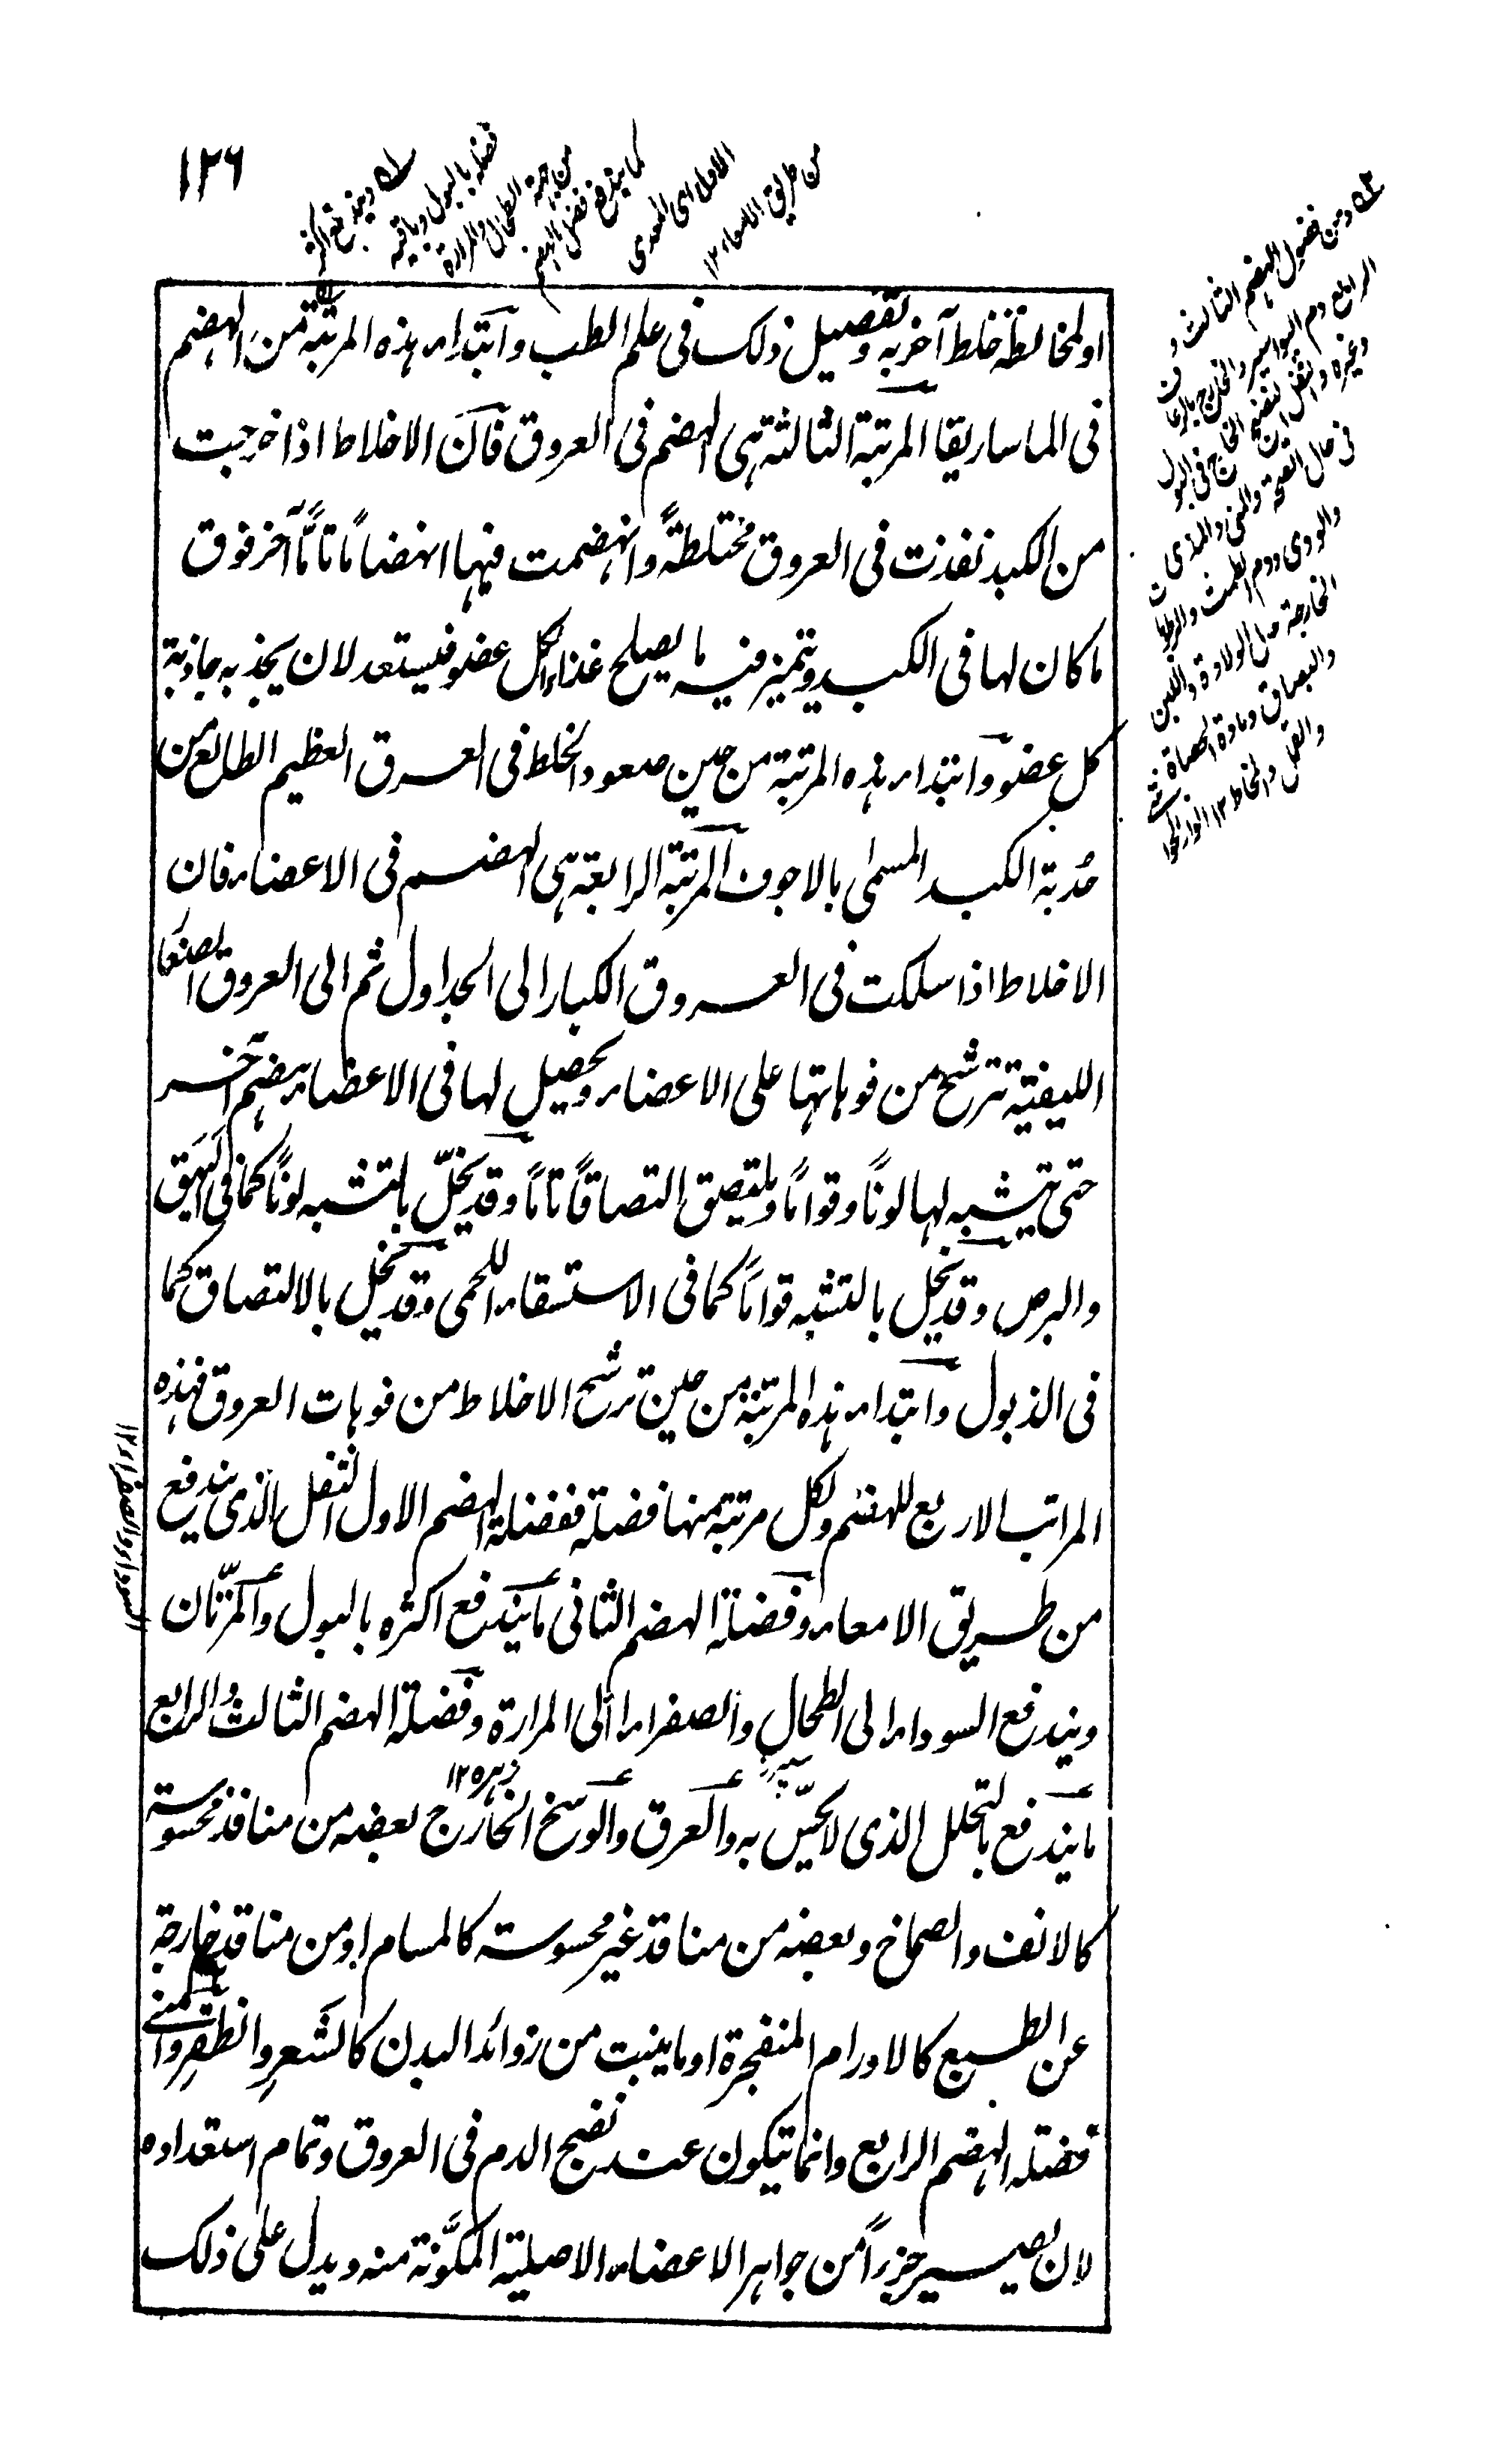 ١٢٦
او لمخالطة خلط آخر به وتفصيل ذلك فى علم الطب وابتداء هذه المرتبة من الهضم
فى الماساريقا المرتبة الثالثة هى الهضم فى العروق فان الاخلاط اذا خرجت
من الكبد نفذت فى العروق مختلطةً وانهضمت فيها انهضامًا تامًّا آخر فوق
ما كان لها فى الكبد ويتميز فيه ما يصلح غذاء لكل عضو فيستعد لان يجذبه جاذبة
كل عضو وابتداء هذه المرتبة من حين صعود الخلط فى العرق العظيم الطالع من
حُدبة الكبد المسمى بالاجوف المرتبة الرابعة هى الهضم فى الاعضاء فان
الاخلاط اذا سلكت فى العروق الكبار الى الجداول ثم الى العروق الصغار
الليفية تترشح من فوهاتها على الاعضاء ويحصل لها فى الاعضاء هضم آخر
حتى يتشبه لها لونًا وقوامًا ويلتصق التصاقًا تامًا وقد يخلّ بالتشبه لونًا كما فى البهق
والبرص وقد يخل بالتشبه قوامًا كما فى الاستسقاء اللحمى وقد يخل بالالتصاق كما
فى الذبول وابتداء هذه المرتبة من حين ترشح الاخلاط من فوهات العروق فهذه
المراتب الاربع للهضم ولكل مرتبة منها فضلة ففضلة الهضم الاول الثفل الذى يندفع
من طريق الامعاء وفضلة الهضم الثانى ما يندفع اكثره بالبول والمرّتان
ويندفع السوداء الى الطحال والصفراء الى المرارة وفضلة الهضم الثالث والرابع
ما يندفع بالتحلل الذى لا يحسّ به والعرق والوسخ الخارج بعضه من منافذ محسوسة
كالانف والصماخ وبعضه من منافذ غير محسوسة كالمسام او من منافذ خارجة
عن الطبع كالاورام المنفجرة او ما ينبت من زوائد البدن كالشعر والظفر والمنى
فضلة الهضم الرابع وانما يتكون عند نضج الدم فى العروق وتمام استعداده
لان يصير جزءًا من جواهر الاعضاء الاصلية المكوّنة منه ويدل على ذلك
فضله بالبول وباقيه
من جهة الطحال والمرارة
كما يندفع فضل الهضم
الاول اى المعدى
من طريق الامعاء ١٢
ومن فضول الهضم الثالث و
الرابع دم البواسير والخارج بالرعاف
وغيره والثفل النضيج الخارج فى البول
فى حال الصحة والمنى والمذى
والودى ودم الطمث والرطوبات
الخارجة من الولادة واللبن
والبصاق ومادة الحصاة
والقمل والمخاط ١٢
السوداء والصفراء ١٢